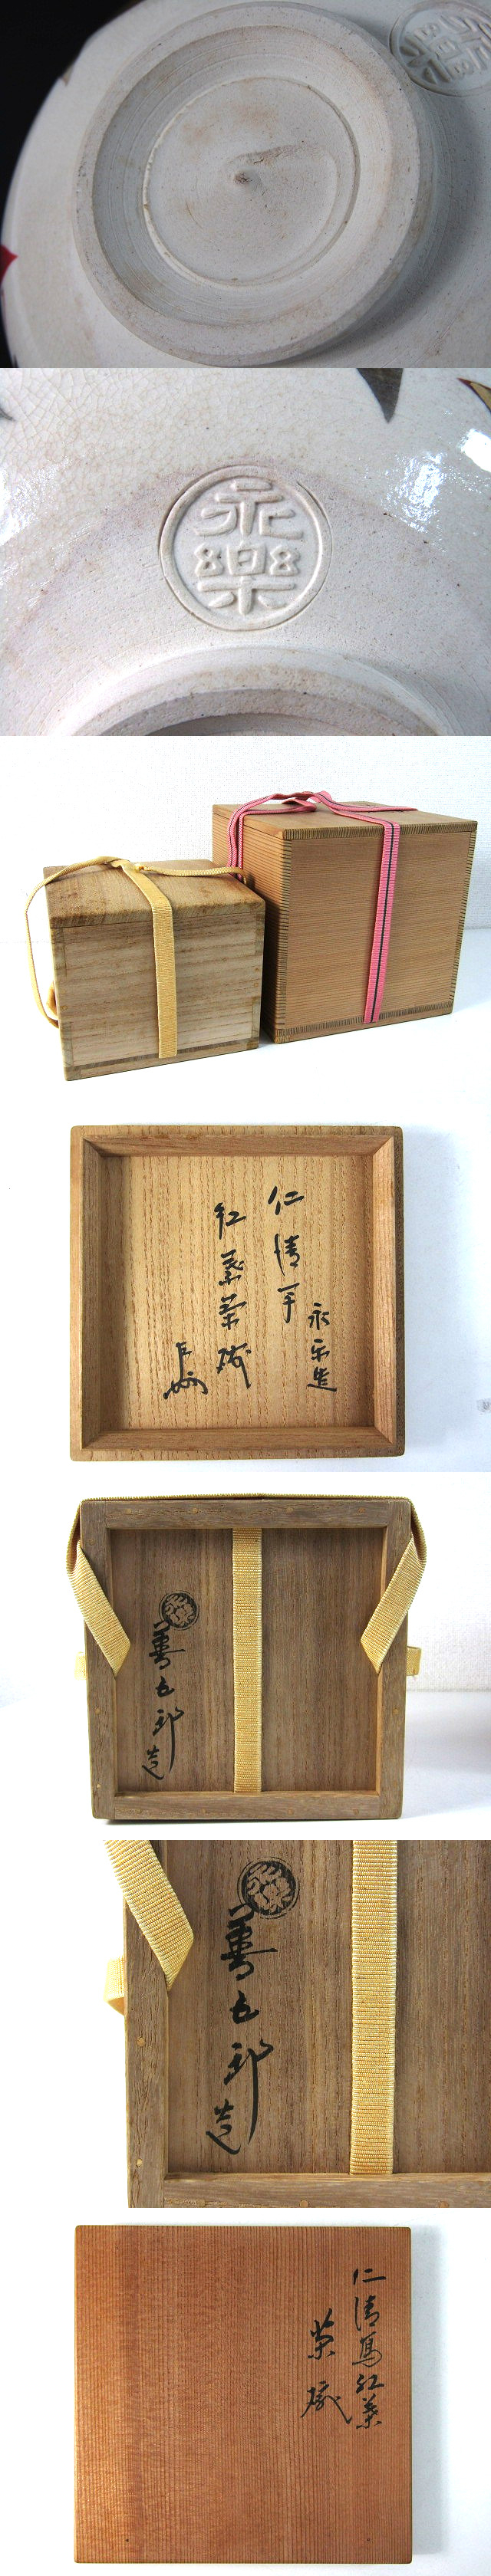 永樂
永樂
仁清手
永楽造
紅葉茶碗
善五郎造
善五郎造
仁清写紅葉
茶碗